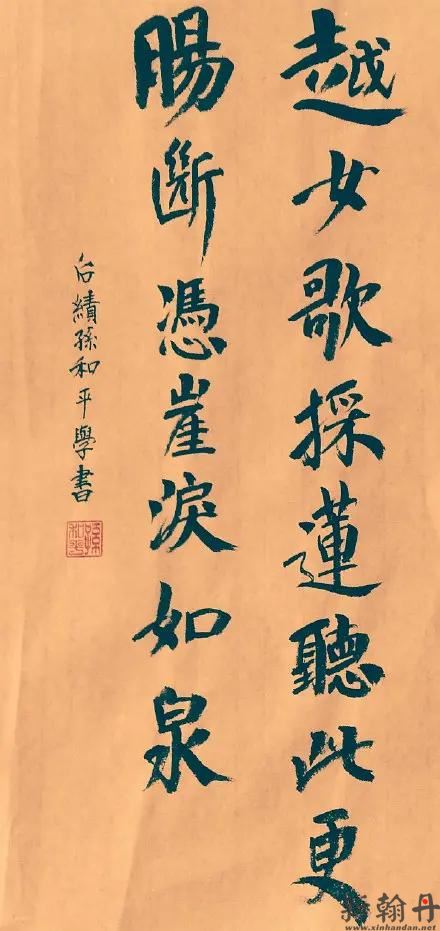 越女歌採蓮聽此更
腸斷憑崖淚如泉
績孫和平學書
孫和平
翰丹
www.xinhandan.net